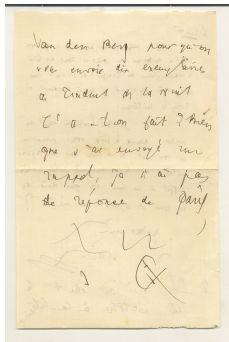 Van den Berg pour qu'on
vous envoie dix exemplaires
de Traduit de la nuit
t'a-t-on fait ?
que j'ai envoyé un
rappel, je n'ai pas
de réponse de Paris